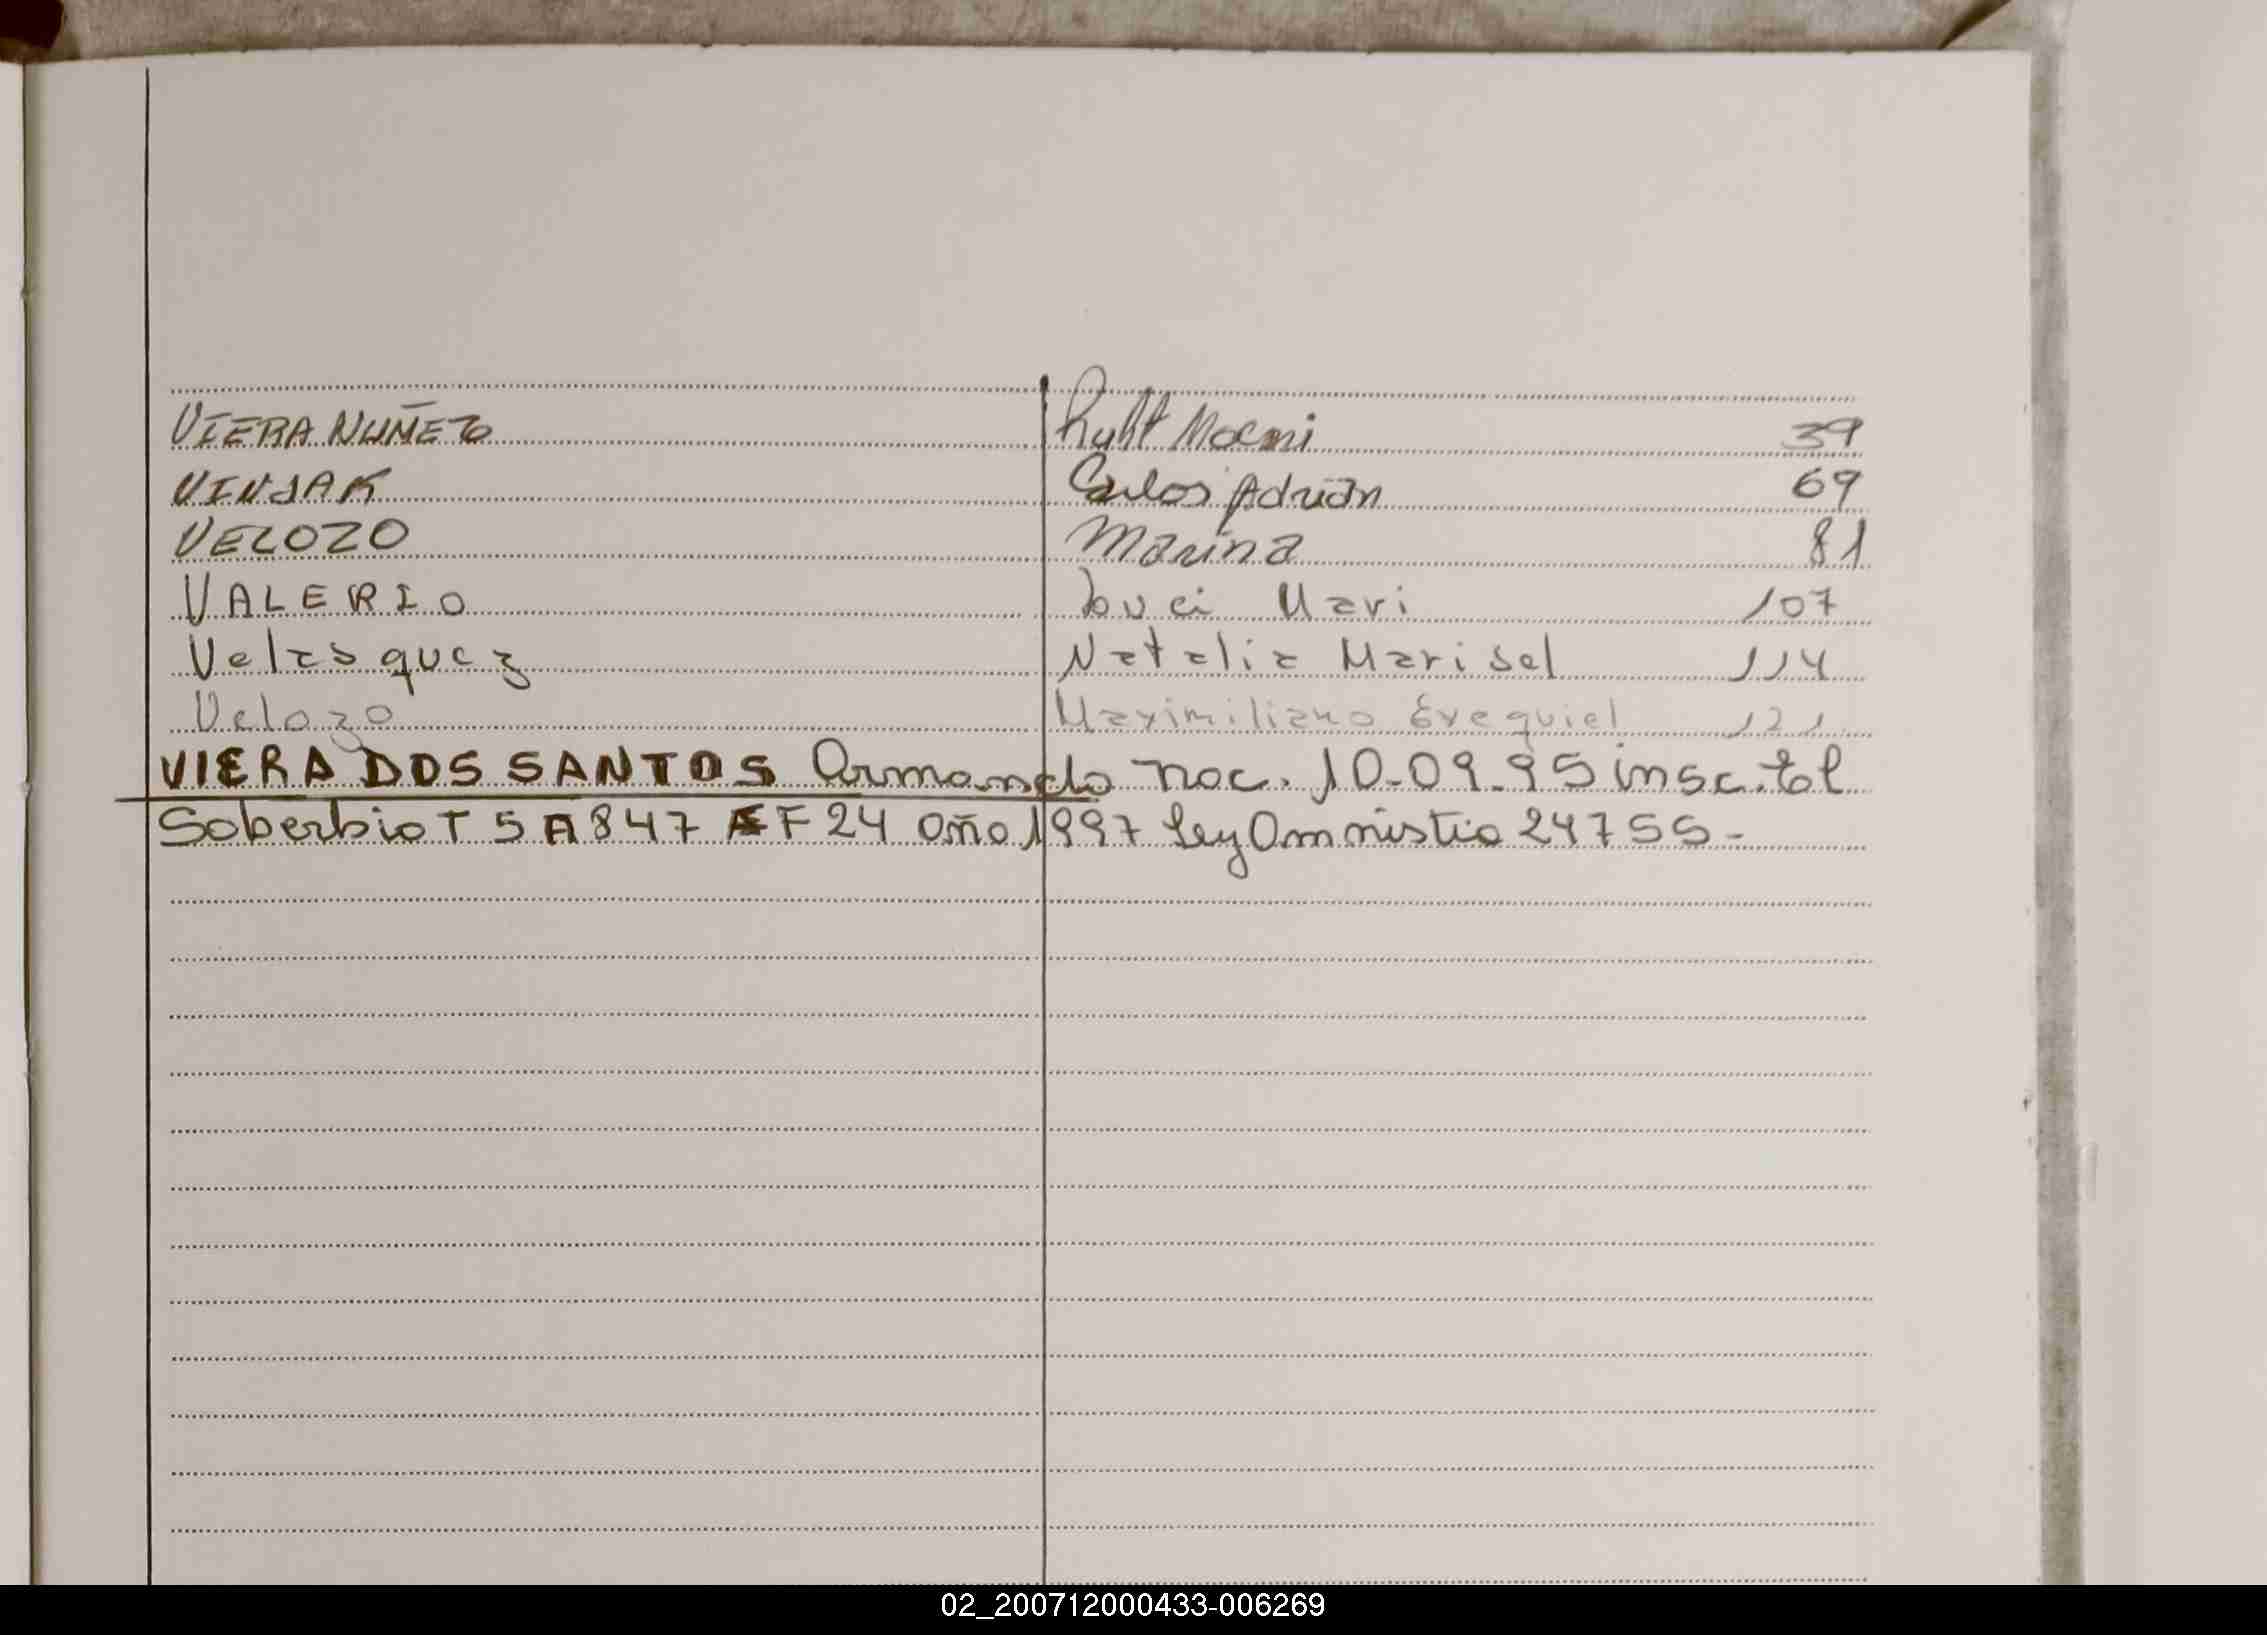 VIERA NUÑEZ Ruht Noemi 39
VINJAK Carlos Adrián 69
VELOZO Marina 81
VALERIO Mari 107
Velasquez Natalia Marisel 114
Velozo Maximiliano Exequiel 121
VIERA DOS SANTOS Armando nac. 10-09-95 insc. tol
Soberbio T 5 A 847 F 24 año 1997 Ley Amnistia 24755-
02_200712000433-006269